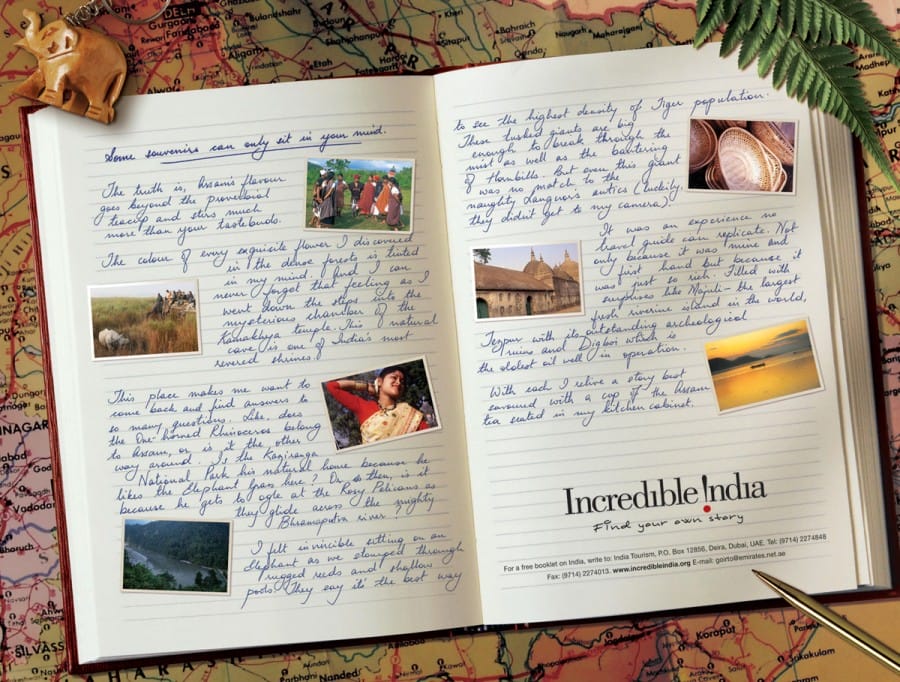 Some souvenirs can only sit in your mind.
The truth is, Assam's flavour
goes beyond the proverbial
teacup and stirs much
more than your tastebuds.
The colour of every exquisite flower I discovered
in the dense forests is tinted
in my mind. I find I can
never forget that feeling as I
went down the steps into the
mysterious chamber of the
Kamakhya temple. This natural
cave is one of India's most
revered shrines
This place makes me want to
come back and find answers to
so many questions. Like, does
the One-horned Rhinoceros belong
to Assam, or is it the other
way around. Is the Kaziranga
National Park his natural home because he
likes the Elephant Grass here? Or so then, is it
because he gets to ogle at the Rosy Pelicans as
they glide across the mighty
Bhramaputra river?
I felt invincible sitting on an
Elephant as we stomped through
rugged reeds and shallow
pools. They say it's the best way
to see the highest density of Tiger population.
These tusked giants are big
enough to break through the
mist as well as the bantering
of Hornbills. But even this giant
was no match to the
naughty Langur's antics (luckily,
they didn't get to my camera).
It was an experience no
travel guide can replicate. Not
only because it was mine and
first hand but because it
was just so rich. Filled with
surprises like Majuli - the largest
fresh riverine island in the world,
Tezpur with its outstanding archeological
ruins and Digboi which is
the oldest oil well in operation.
With each I relive a story best
savoured with a cup of the Assam
tea seated in my kitchen cabinet.
Incredible !ndia
Find your own story
For a free booklet on India, write to: India Tourism, P.O. Box 12856, Deira, Dubai, UAE. Tel: (9714) 2274848
Fax: (9714) 2274013. www.incredibleindia.org E-mail: goirto@emirates.net.ae
DELHI
Gurgaon
Faridabad
Bulandshahr
Shahjahanpur
Sitapur
Bahraich
Gonda
Aligarh
Etah
Kheri
Maharajganj
NAGAR
Vadodara
Bharuch
SILVASSA
MAHARASH
Parbhani
Nanded
Jagdalpur
Koraput
Srikakulam